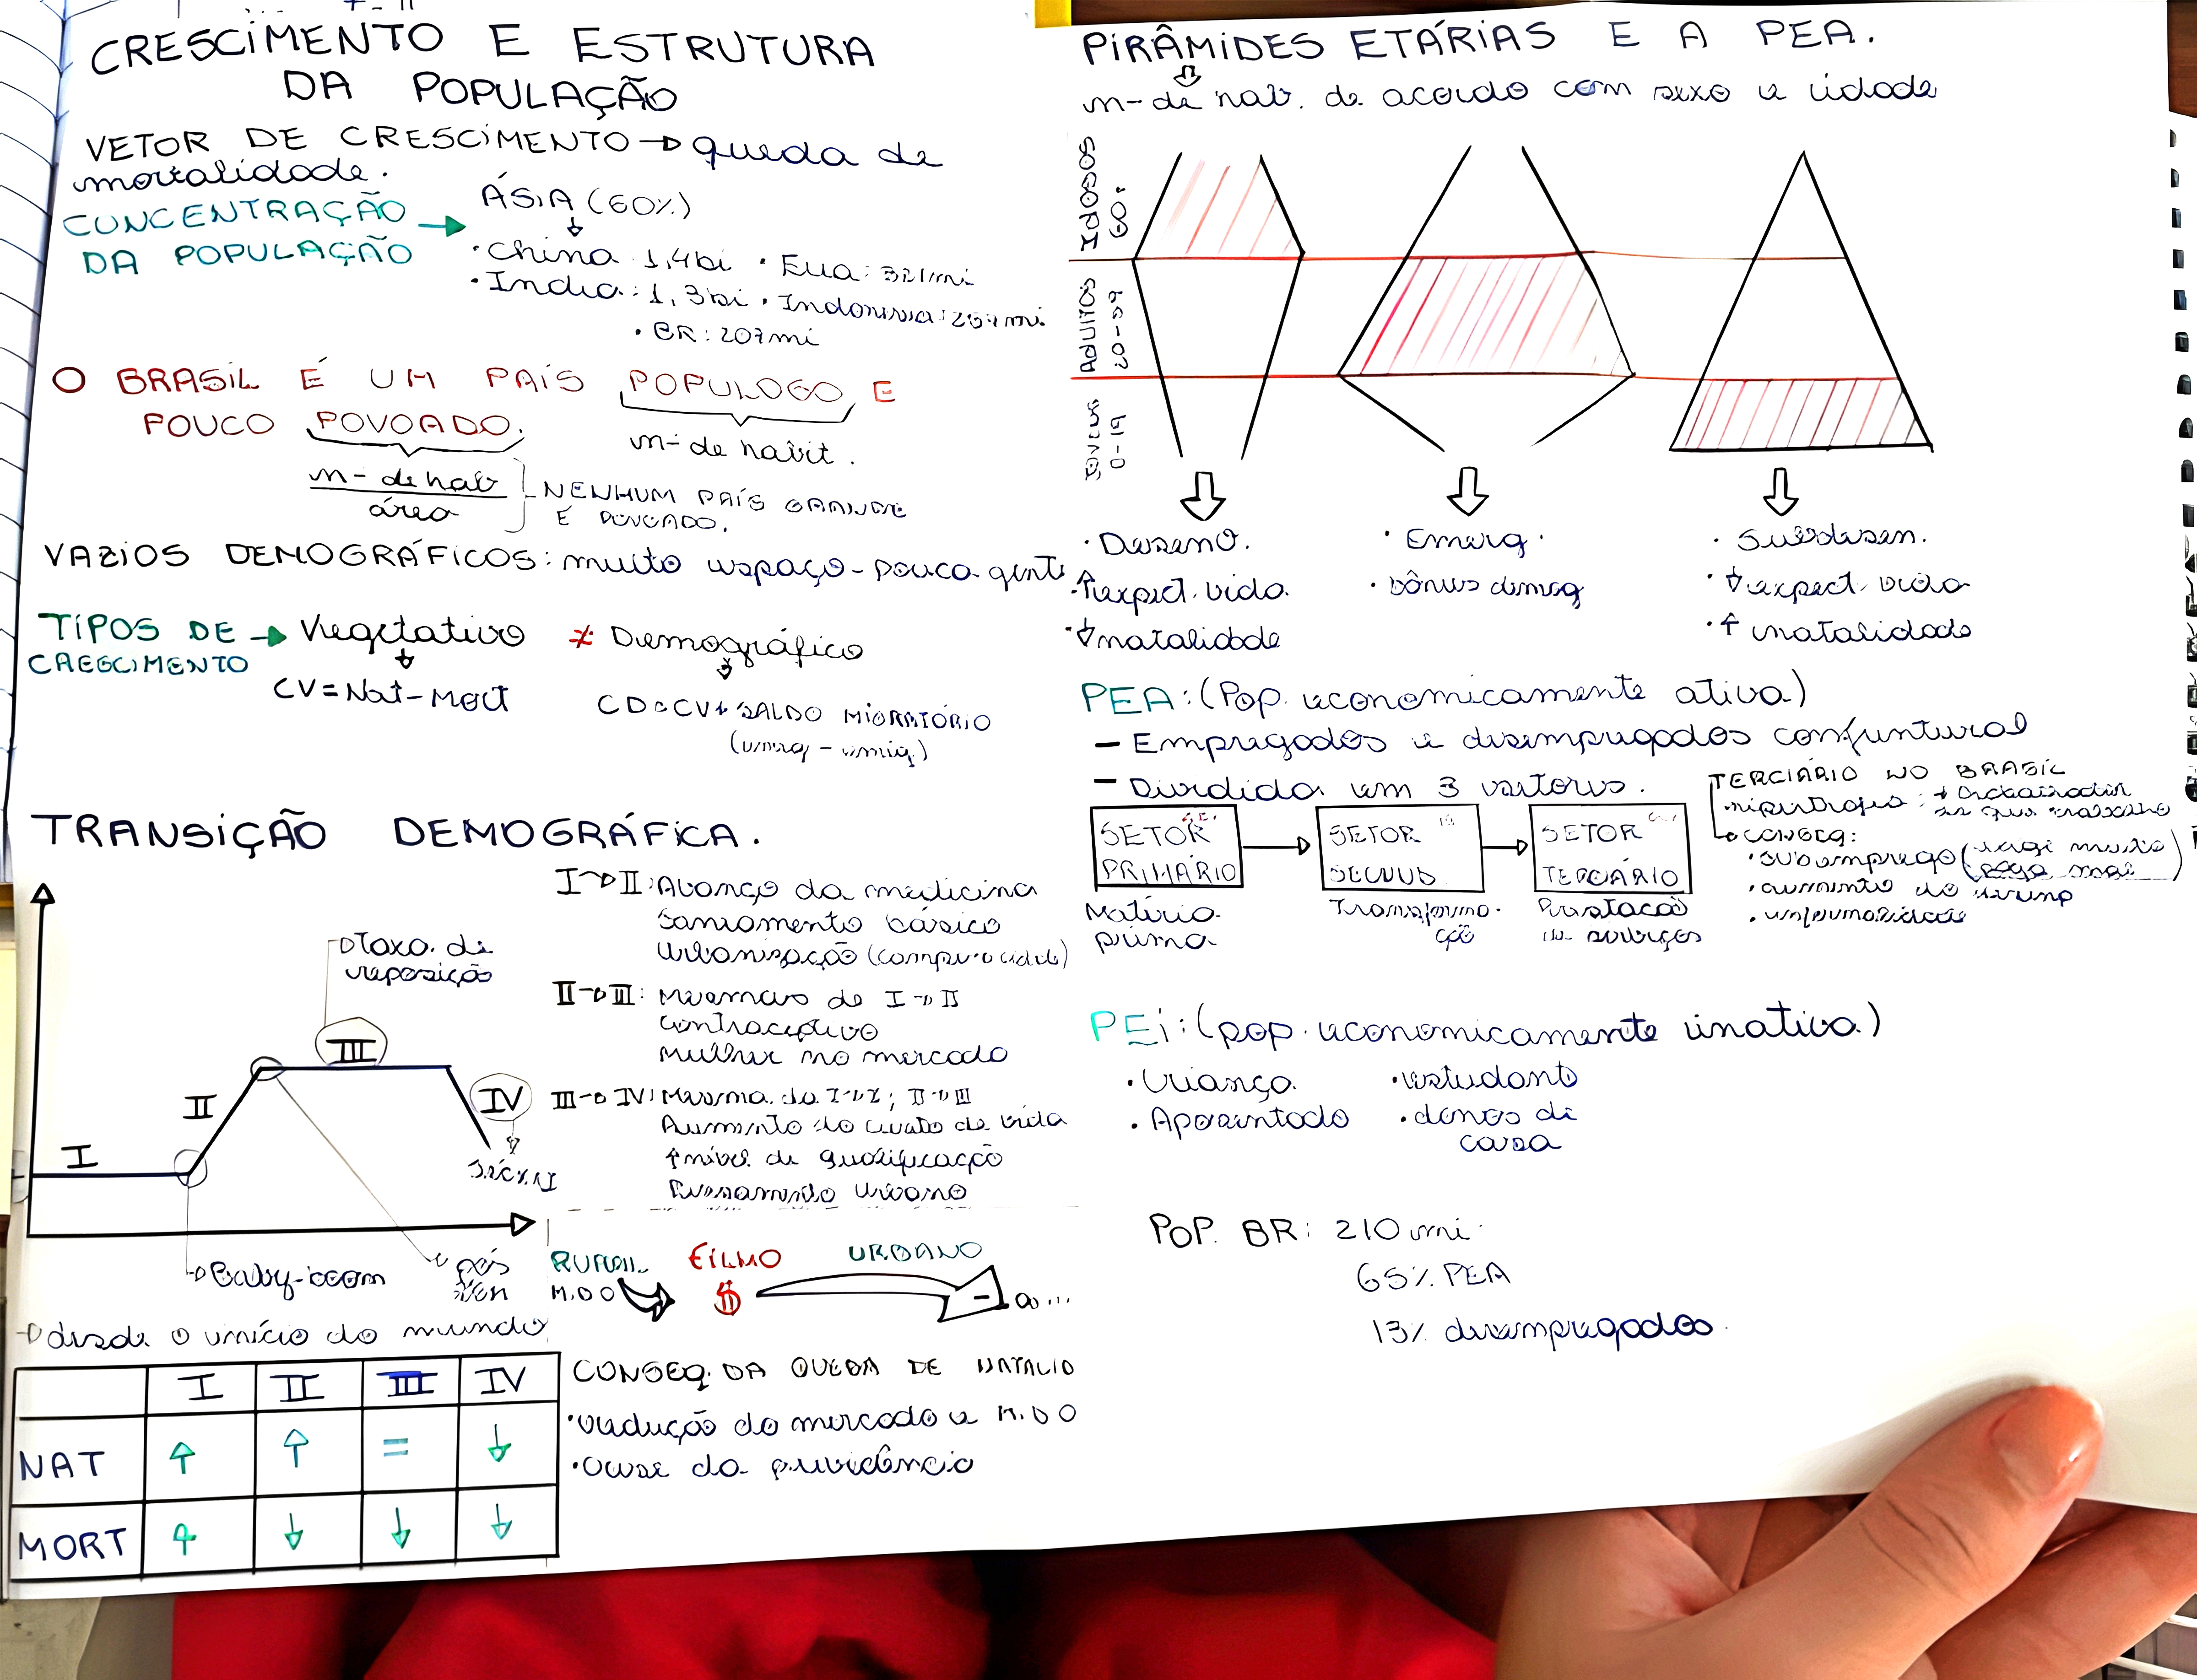 CRESCIMENTO E ESTRUTURA
DA POPULAÇÃO
VETOR DE CRESCIMENTO → queda de
mortalidade.
CONCENTRAÇÃO
DA POPULAÇÃO →
ÁSIA (60%)
• China 1,4bi • Eua: 321mi
• India: 1,3bi • Indonesia: 257mi
• BR: 207mi
O BRASIL É UM PAÍS POPULOSO E
POUCO POVOADO.
n- de habit.
n- de hab
área
NENHUM PAÍS GRANDE
É POVOADO.
VAZIOS DEMOGRÁFICOS: muito espaço - pouca gente
TIPOS DE → Vegetativo ≠ Demográfico
CRESCIMENTO
CV = Nat - Mort
CD = CV + SALDO MIGRATÓRIO
(imig - emig)
TRANSIÇÃO DEMOGRÁFICA.
I → II: Avanço da medicina
Saneamento básico
Urbanização
Taxa de
reposição
II → III: Mesmas de I → II
Contraceptivo
Mulher no mercado
III → IV: Mesma da I → II; II → III
Aumento do custo de vida
↑ nível de qualificação
Pensamento urbano
I
II
III
IV
Séc XXI
→ Baby-boom
→ pós
→ desde o início do mundo
RURAL FILHO URBANO
M.D.O $ -
I II III IV
NAT ↑ ↑ = ↓
MORT ↑ ↓ ↓ ↓
CONSEQ. DA QUEDA DE NATALID
• redução do mercado e M.D.O
• crise da previdência
PIRÂMIDES ETÁRIAS E A PEA.
n- de hab. de acordo com sexo e idade
Idosos
60+
Adultos
20-59
Jovens
0-19
• Desenv.
• ↑ expect. vida
• ↓ natalidade
• Emerg.
• bônus demog
• Subdesen.
• ↓ expect. vida
• ↑ natalidade
PEA: (Pop. economicamente ativa)
- Empregados e desempregados conjuntural
- Dividida em 3 setores.
SETOR
PRIMÁRIO
Matéria
prima
SETOR
SECUND
Transforma-
ção
SETOR
TERCIÁRIO
Prestação
de serviços
TERCIÁRIO NO BRASIL
hipertrofia:
CONSEQ:
• subemprego (exige muito
paga mal)
• aumento do desemp
• informalidade
PEI: (pop. economicamente inativa)
• Criança
• Aposentado
• estudante
• donas de
casa
POP. BR: 210 mi
65% PEA
13% desempregados.